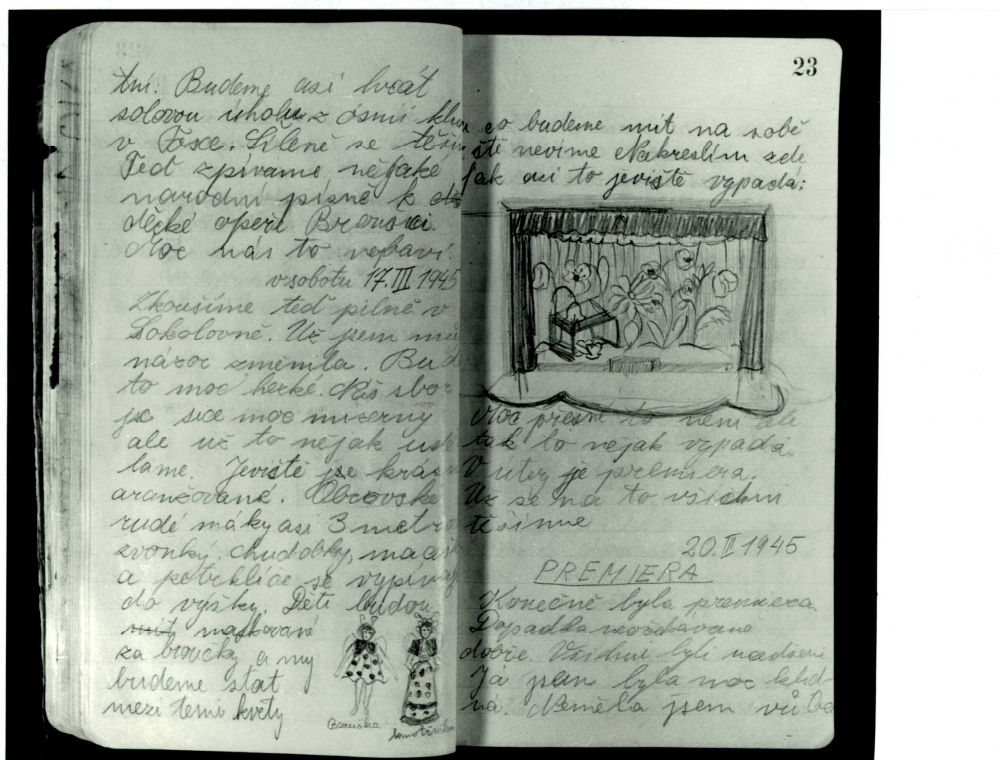 tní. Budeme asi hrát
solovou úlohu z osmi
v Tosce. Šíleně se těším
Teď zpíváme nějaké
národní písně k
dětské opeře Broučci.
Moc nás to nebaví.
v sobotu 17.III 1945
Zkoušíme teď pilně v
Sokolovně. Už jsem
názor změnila. Bud
to moc hezké. Náš sbor
je sice moc mizerný
ale už to nějak
láme. Jeviště je krás
aranžované. Obrovské
rudé máky asi 3 metro
zvonky, chudobky,
a petrklíče se vypínaj
do výšky. Děti budou
maskované
za broučky a my
budeme stát
mezi těmi květy
Beruška
23
co budeme mít na sobě
ště nevíme Nakreslím zde
jak asi to jeviště vypadá:
Moc přesné to není ale
tak to nějak vypadá.
V úterý je premiera.
Už se na to všichni
těšíme
20.III 1945
PREMIERA
Konečně byla premiera.
Dopadla neočekávaně
dobře. Všichni byli nadšeni
Já jsem byla moc klid-
ná. Neměla jsem vůbec